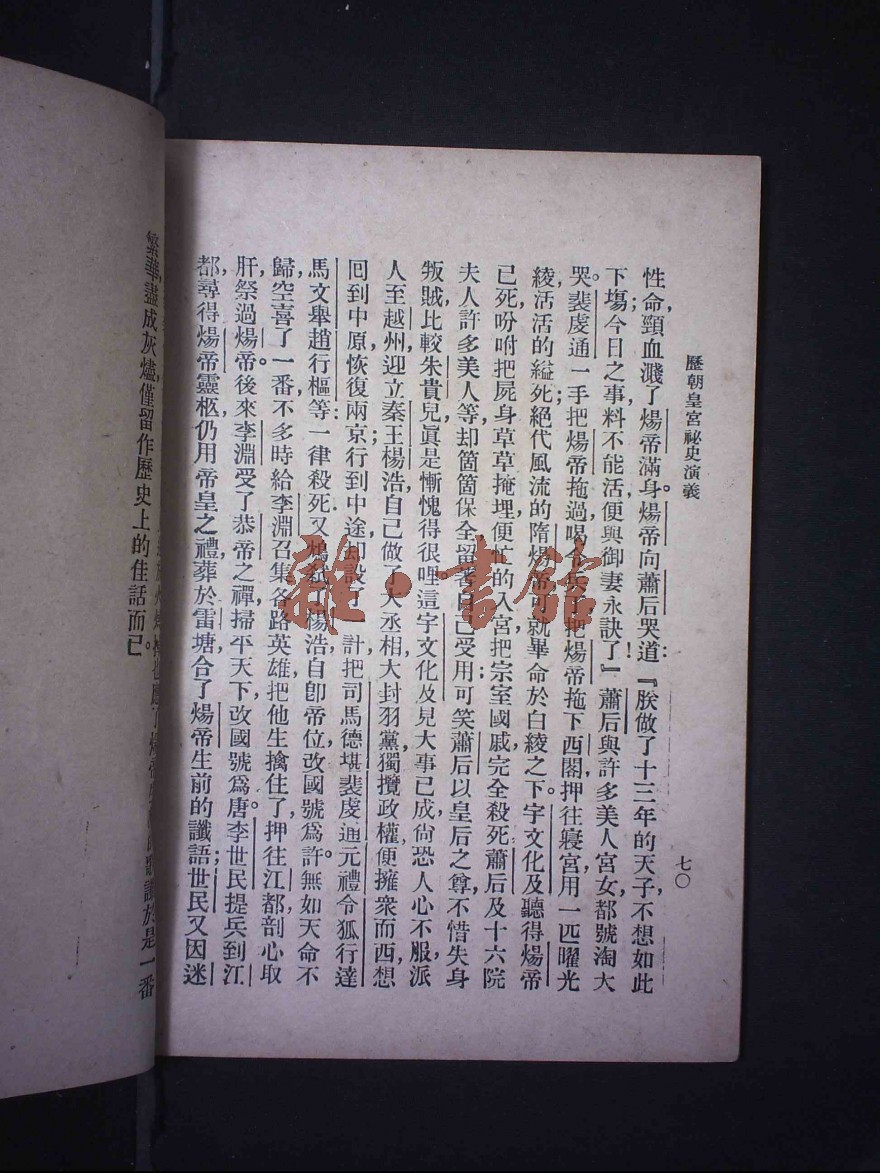 歷朝皇宮祕史演義
七〇
性命,頸血濺了煬帝滿身。煬帝向蕭后哭道:『朕做了十三年的天子,不想如此
下塲;今日之事,料不能活,便與御妻永訣了!』蕭后與許多美人宮女,都號淘大
哭。裴虔通一手把煬帝拖過,喝令兵丁把煬帝拖下西閣,押往寢宮,用一匹曜光
綾,活活的縊死;絕代風流的隋煬帝,可就畢命於白綾之下。宇文化及聽得煬帝
已死,吩咐把屍身草草掩埋,便忙的入宮,把宗室國戚,完全殺死;蕭后及十六院
夫人,許多美人等,却箇箇保全,留着自己受用,可笑蕭后以皇后之尊,不惜失身
叛賊,比較朱貴兒,眞是慚愧得很哩!這宇文化及見大事已成,尙恐人心不服,派
人至越州,迎立秦王楊浩;自己做了大丞相,大封羽黨,獨攬政權,便擁衆而西,想
囘到中原,恢復兩京,行到中途,却設下一計,把司馬德堪裴虔通元禮令狐行達
馬文舉趙行樞等,一律殺死;又鴆弒楊浩,自卽帝位,改國號爲許。無如天命不
歸,空喜了一番,不多時,給李淵召集各路英雄,把他生擒住了,押往江都,剖心取
肝,祭過煬帝。後來李淵受了恭帝之禪,掃平天下,改國號爲唐。李世民提兵到江
都,尋得煬帝靈柩,仍用帝皇之禮,葬於雷塘,合了煬帝生前的讖語;世民又因迷
於是一番
繁華,盡成灰燼,僅留作歷史上的佳話而已。
雜·書館